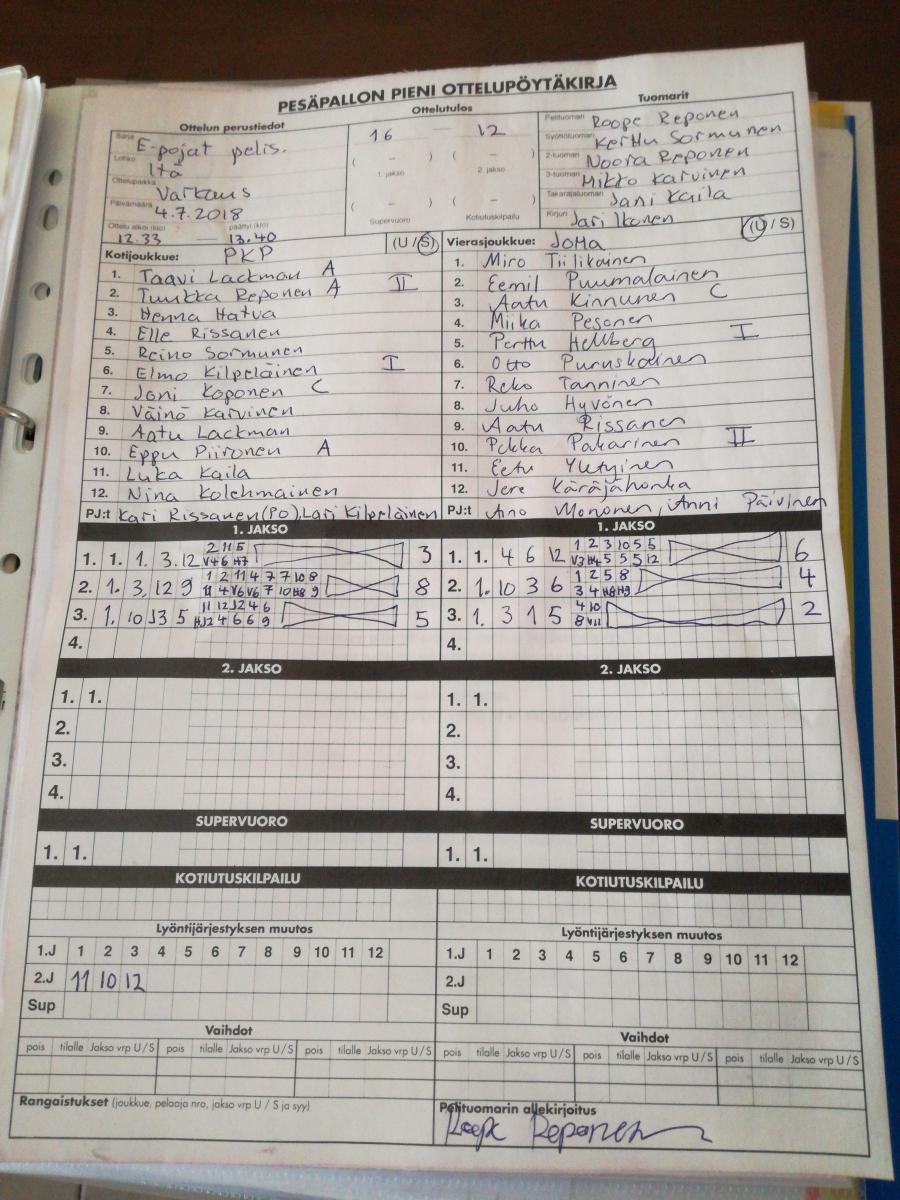 PESÄPALLON PIENI OTTELUPÖYTÄKIRJA
Ottelun perustiedot
Sarja E-pojat pelis.
Lohko Itä
Ottelupaikka Varkaus
Päivämäärä 4.7.2018
Ottelu alkoi (klo) päättyi (klo)
12.33 — 13.40
Ottelutulos
16 – 12
( – ) ( – )
1. jakso 2. jakso
( – ) –
Supervuoro Kotiutuskilpailu
Tuomarit
Pelituomari Roope Reponen
Syöttötuomari Kerttu Sormunen
2-tuomari Noora Reponen
3-tuomari Mikko Karvinen
Takarajatuomari Jani Kaila
Kirjuri Jari Ikonen
Kotijoukkue: PKP (U / S)
1. Taavi Lackman A
2. Tuukka Reponen A II
3. Henna Hatva
4. Elle Rissanen
5. Reino Sormunen
6. Elmo Kilpeläinen I
7. Joni Koponen C
8. Väinö Karvinen
9. Aatu Lackman
10. Eppu Piironen A
11. Luka Kaila
12. Nina Kolehmainen
PJ:t Kari Rissanen (PO), Lari Kilpeläinen
Vierasjoukkue: JoMa (U / S)
1. Miro Tiilikainen
2. Eemil Puumalainen
3. Aatu Kinnunen C
4. Miika Pesonen
5. Perttu Hellberg I
6. Otto Puruskainen
7. Reko Tanninen
8. Juho Hyvönen
9. Aatu Rissanen
10. Pekka Pakarinen II
11. Eetu
12. Jere Käräjähonka
PJ:t Aino Mononen, Anni Päivinen
1. JAKSO
1. 1. 1. 3. 12 2 11 5 3
V4 6 H7
2. 1. 3, 12 9 1 2 11 4 7 7 10 8 8
11 4 V6 V6 7 10 H8 9
3. 1. 10 J3 5 11 12 J2 4 6 5
HJ2 4 6 6 9
4.
1. JAKSO
1. 1. 4 6 12 1 2 3 10 5 5 6
V3 H4 5 5 5 12
2. 1. 10 3 6 1 2 5 8 4
3 4 H8 H9
3. 1. 3 1 5 4 10 2
8 V11
4.
2. JAKSO
1. 1.
2.
3.
4.
2. JAKSO
1. 1.
2.
3.
4.
SUPERVUORO
1. 1.
SUPERVUORO
1. 1.
KOTIUTUSKILPAILU
KOTIUTUSKILPAILU
Lyöntijärjestyksen muutos
1.J 1 2 3 4 5 6 7 8 9 10 11 12
2.J 11 10 12
Sup
Lyöntijärjestyksen muutos
1.J 1 2 3 4 5 6 7 8 9 10 11 12
2.J
Sup
Vaihdot
pois tilalle Jakso vrp U / S pois tilalle Jakso vrp U / S pois tilalle Jakso vrp U / S
Vaihdot
pois tilalle Jakso vrp U / S pois tilalle Jakso vrp U / S pois tilalle Jakso vrp U / S
Rangaistukset (joukkue, pelaaja nro, jakso vrp U / S ja syy)
Pelituomarin allekirjoitus
Roope Reponen